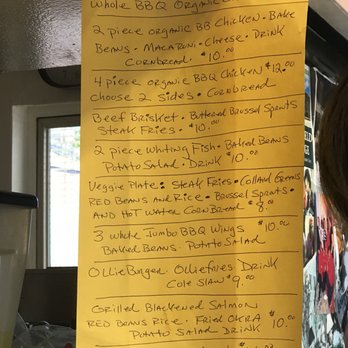 Whole BBQ Organic
2 piece organic BB Chicken · Bake
Beans · Macaroni · Cheese · Drink
Cornbread · $10.00
4 piece organic BBQ Chicken $12.00
choose 2 sides · Cornbread
Beef Brisket · Buttered Brussel Sprouts
Steak Fries · $10.00
2 piece Whiting Fish · Baked Beans
Potato Salad · Drink $10.00
Veggie Plate: Steak Fries · Collard Greens
Red Beans and Rice · Brussel Sprouts ·
and Hot Water Cornbread $8.00
3 Whole Jumbo BBQ Wings $10.00
Baked Beans · Potato Salad
Ollie Burger Olliefries Drink
Cole Slaw $9.00
Grilled Blackened Salmon
Red Beans Rice · Fried Okra $10.00
Potato Salad Drink